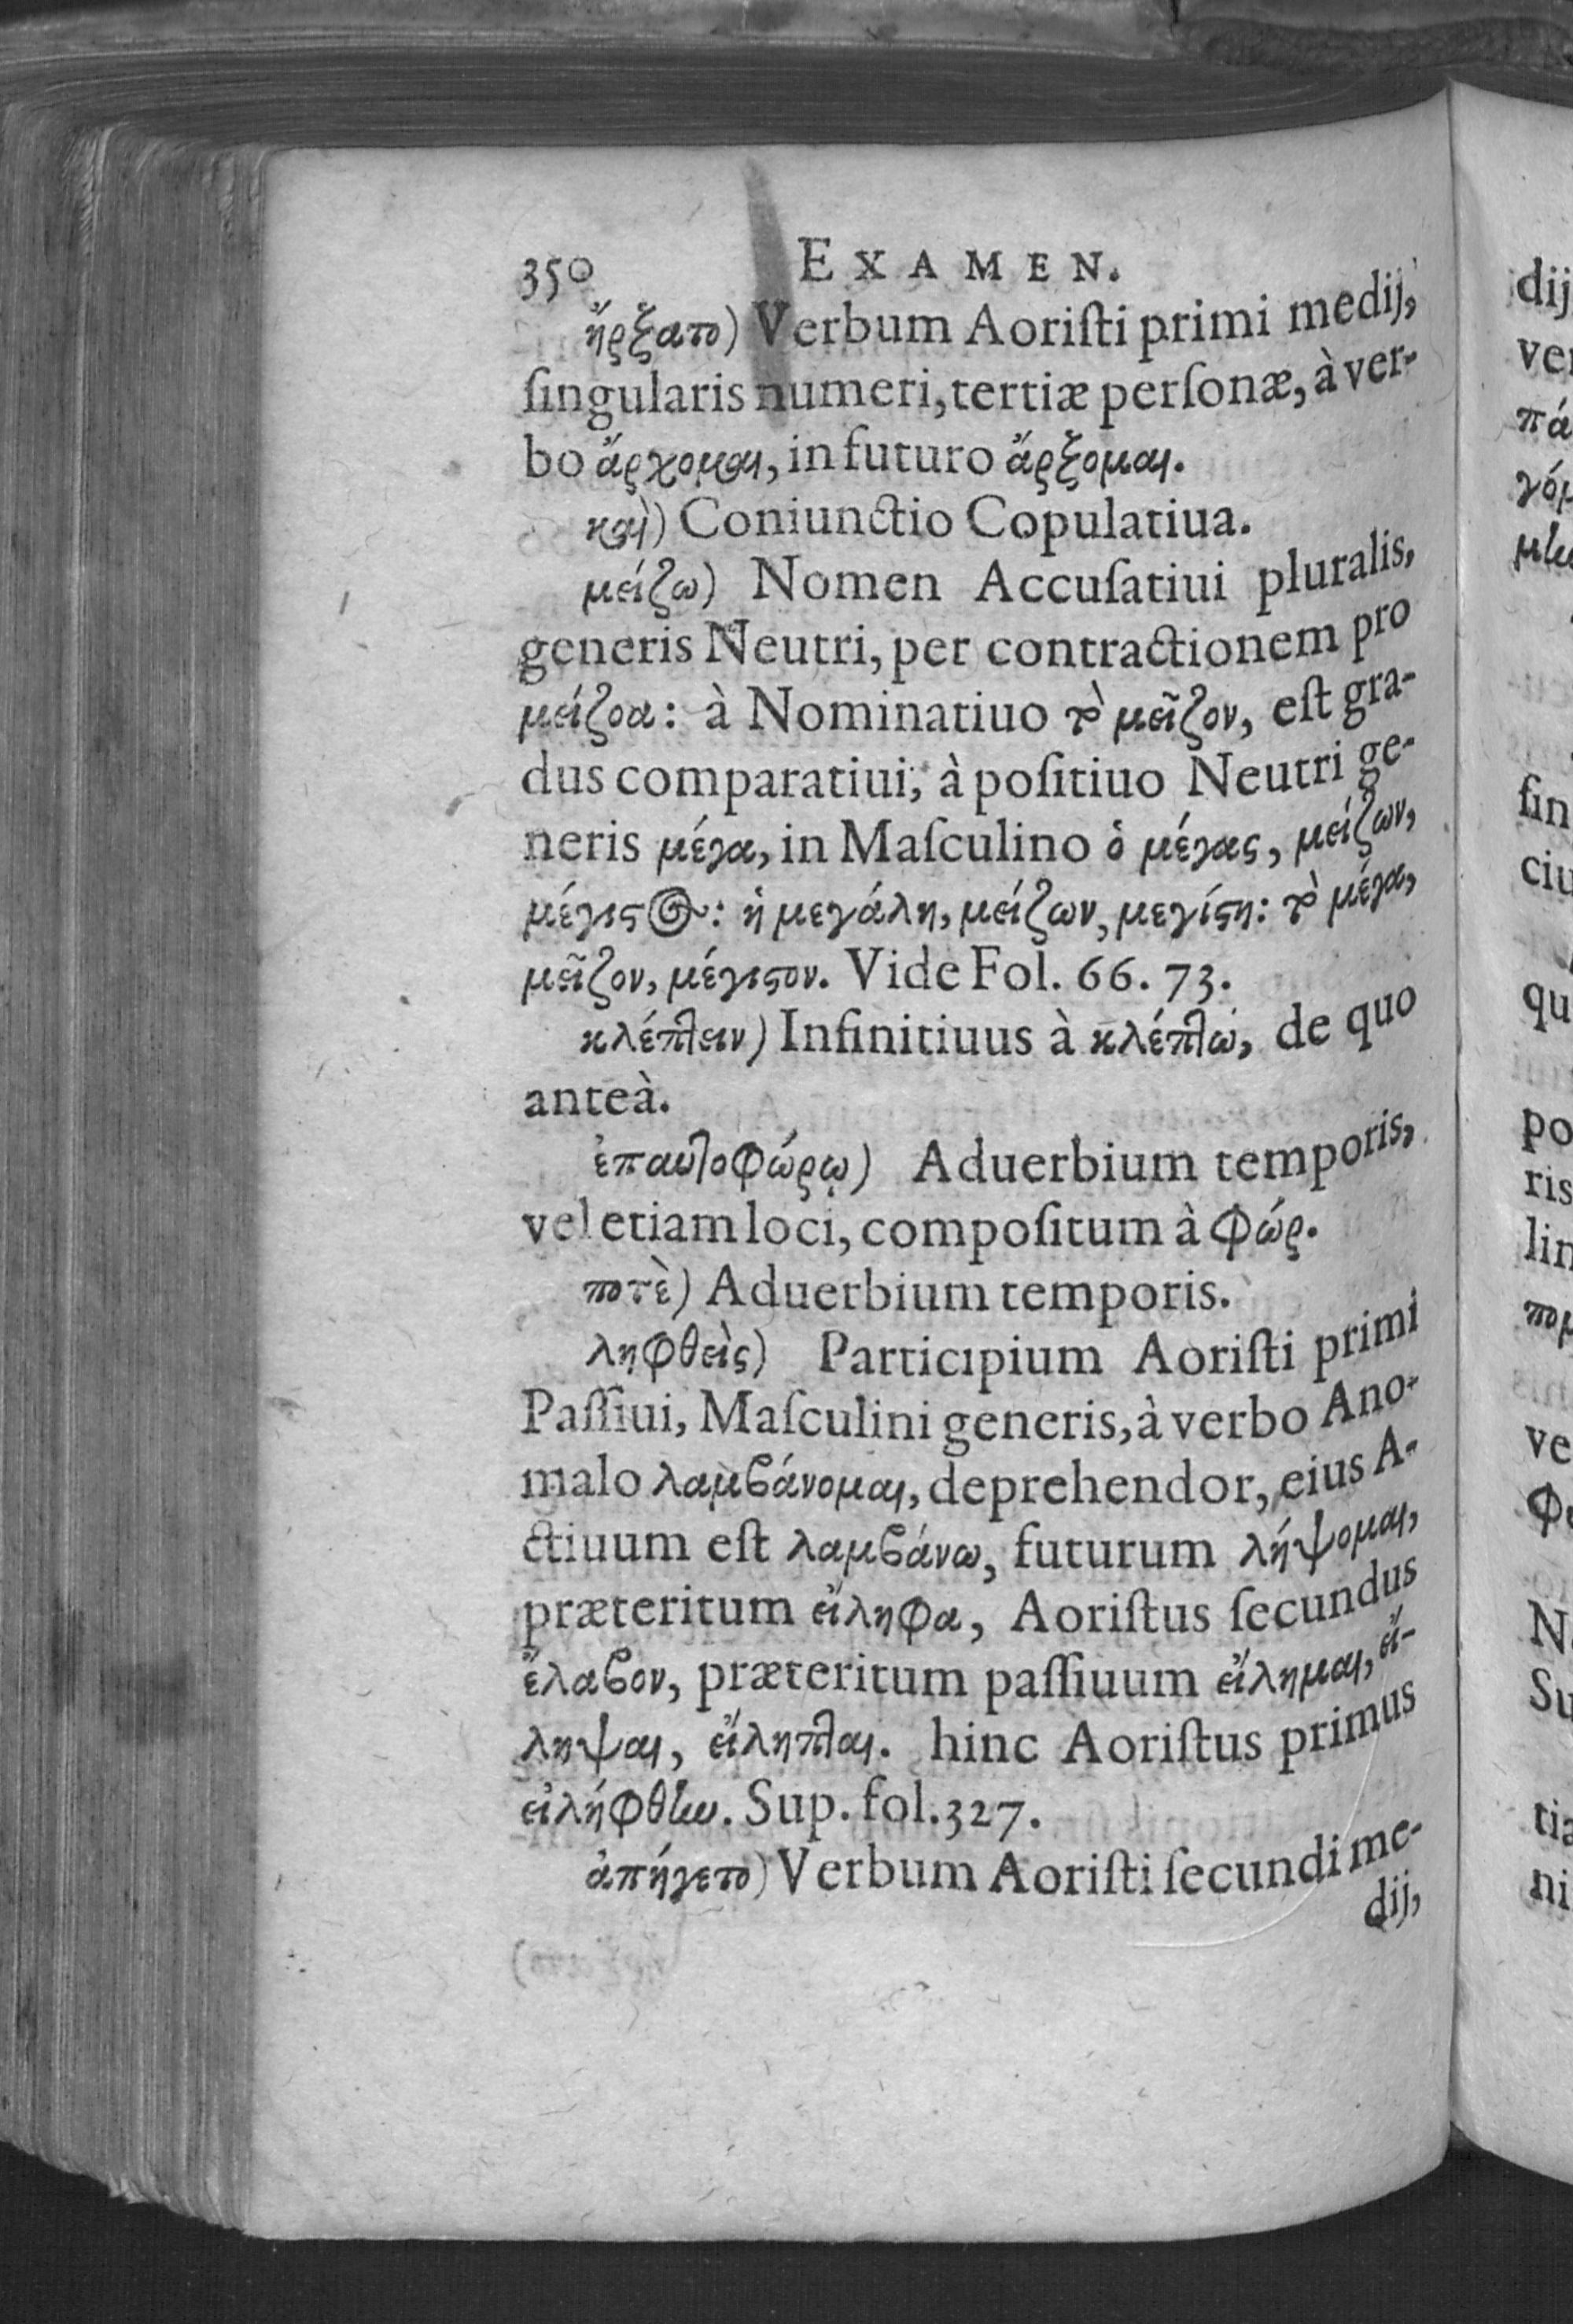 350 EXAMEN.
ἤρξατο) Verbum Aoriſti primi medij,
ſingularis numeri, tertiæ perſonæ, à ver-
bo ἄρχομαι, in futuro ἄρξομαι.
καὶ) Coniunctio Copulatiua.
μείζω) Nomen Accuſatiui pluralis,
generis Neutri, per contractionem pro
μείζοα: à Nominatiuo τὸ μεῖζον, eſt gra-
dus comparatiui, à poſitiuo Neutri ge-
neris μέγα, in Maſculino ὁ μέγας, μείζων,
μέγιϛος: ἡ μεγάλη, μείζων, μεγίϛη: τὸ μέγα,
μεῖζον, μέγιϛον. Vide Fol. 66. 73.
κλέπτειν) Infinitiuus à κλέπτω, de quo
anteà.
ἐπαυτοφώρῳ) Aduerbium temporis,
vel etiam loci, compoſitum à φώρ.
ποτὲ) Aduerbium temporis.
ληφθεὶς) Participium Aoriſti primi
Paſſiui, Maſculini generis, à verbo Ano-
malo λαμϐάνομαι, deprehendor, eius A-
ctiuum eſt λαμϐάνω, futurum λήψομαι,
præteritum εἴληφα, Aoriſtus ſecundus
ἔλαϐον, præteritum paſſiuum εἴλημαι, εἴ-
ληψαι, εἴληπται. hinc Aoriſtus primus
εἰλήφθην. Sup. fol. 327.
ἀπήγετο) Verbum Aoriſti ſecundi me-
dij,
dij
ver
πά
γόμ
μην
ſin
ciu
qu
po
ris
lin
πομ
ve
φε
N
Su
tia
ni